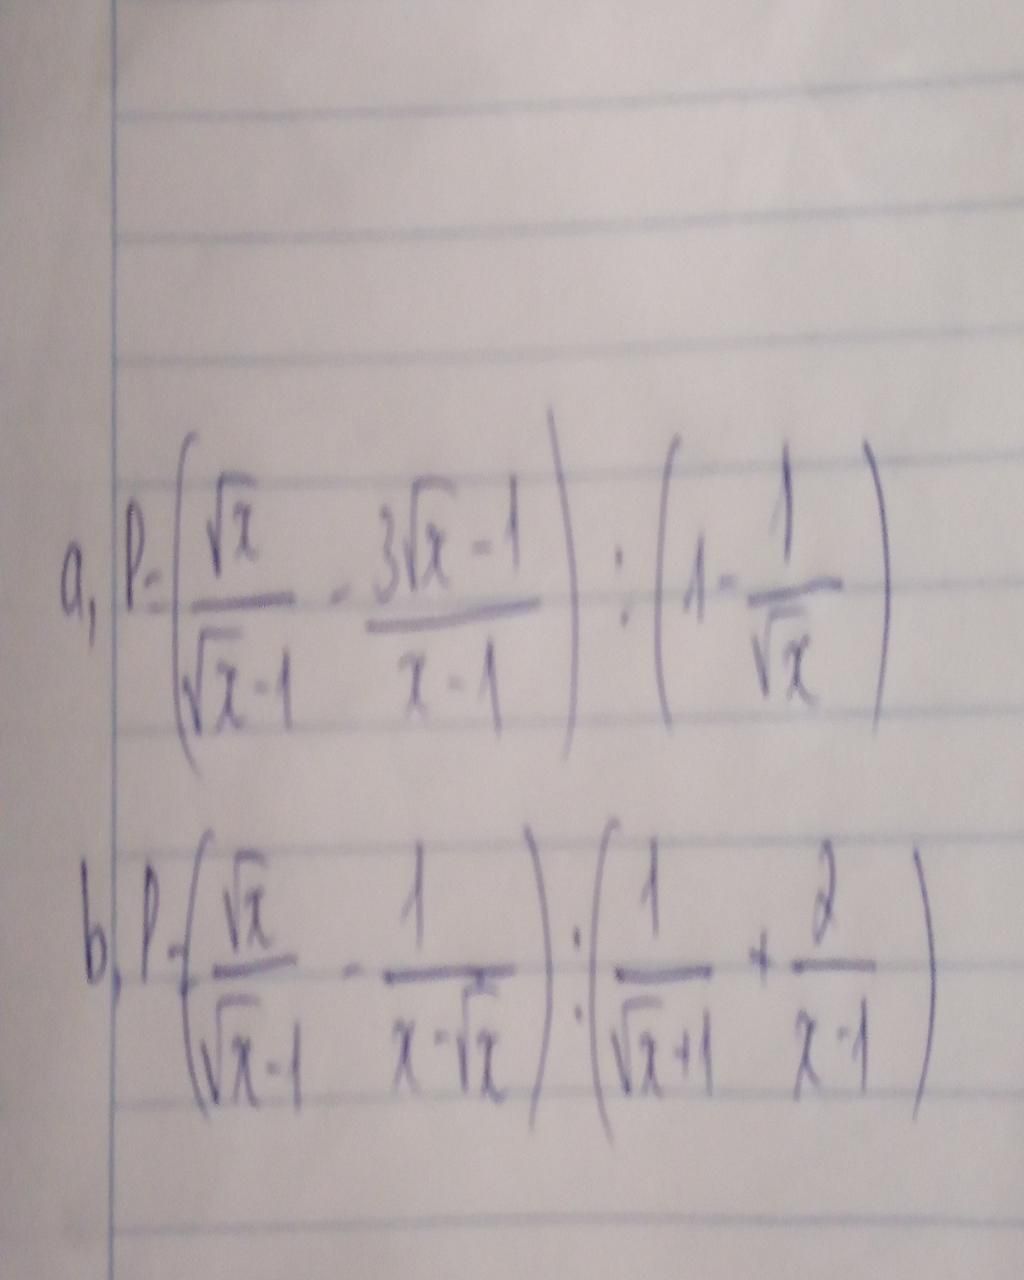 a, P = (√x / (√x - 1) - (3√x - 1) / (x - 1)) : (1 - 1 / √x)
b, P = (√x / (√x - 1) - 1 / (x - √x)) : (1 / (√x + 1) + 2 / (x - 1))